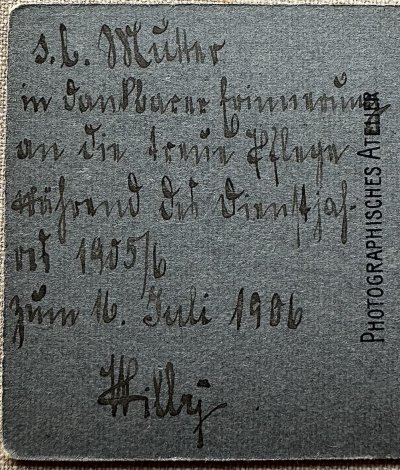 s. l. Mutter
in dankbarer Erinnerung
an die treue Pflege
während des Dienstjah-
res 1905/6
zum 16. Juli 1906
Willy
PHOTOGRAPHISCHES ATELIER